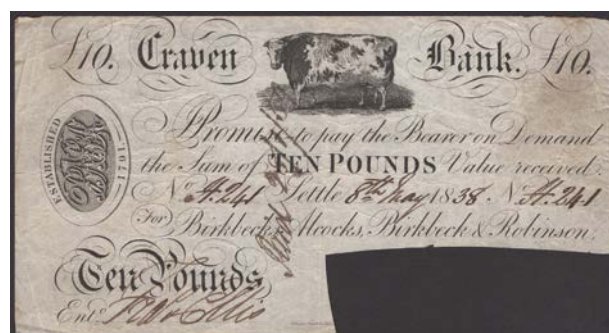 £10. Craven Bank. £10.
ESTABLISHED 1791.
I Promise to pay the Bearer on Demand
the Sum of TEN POUNDS Value received.
No. A.241 Settle 8th May 1838 No. A.241
For Birkbeck, Alcocks, Birkbeck & Robinson,
Ten Pounds
Entd.